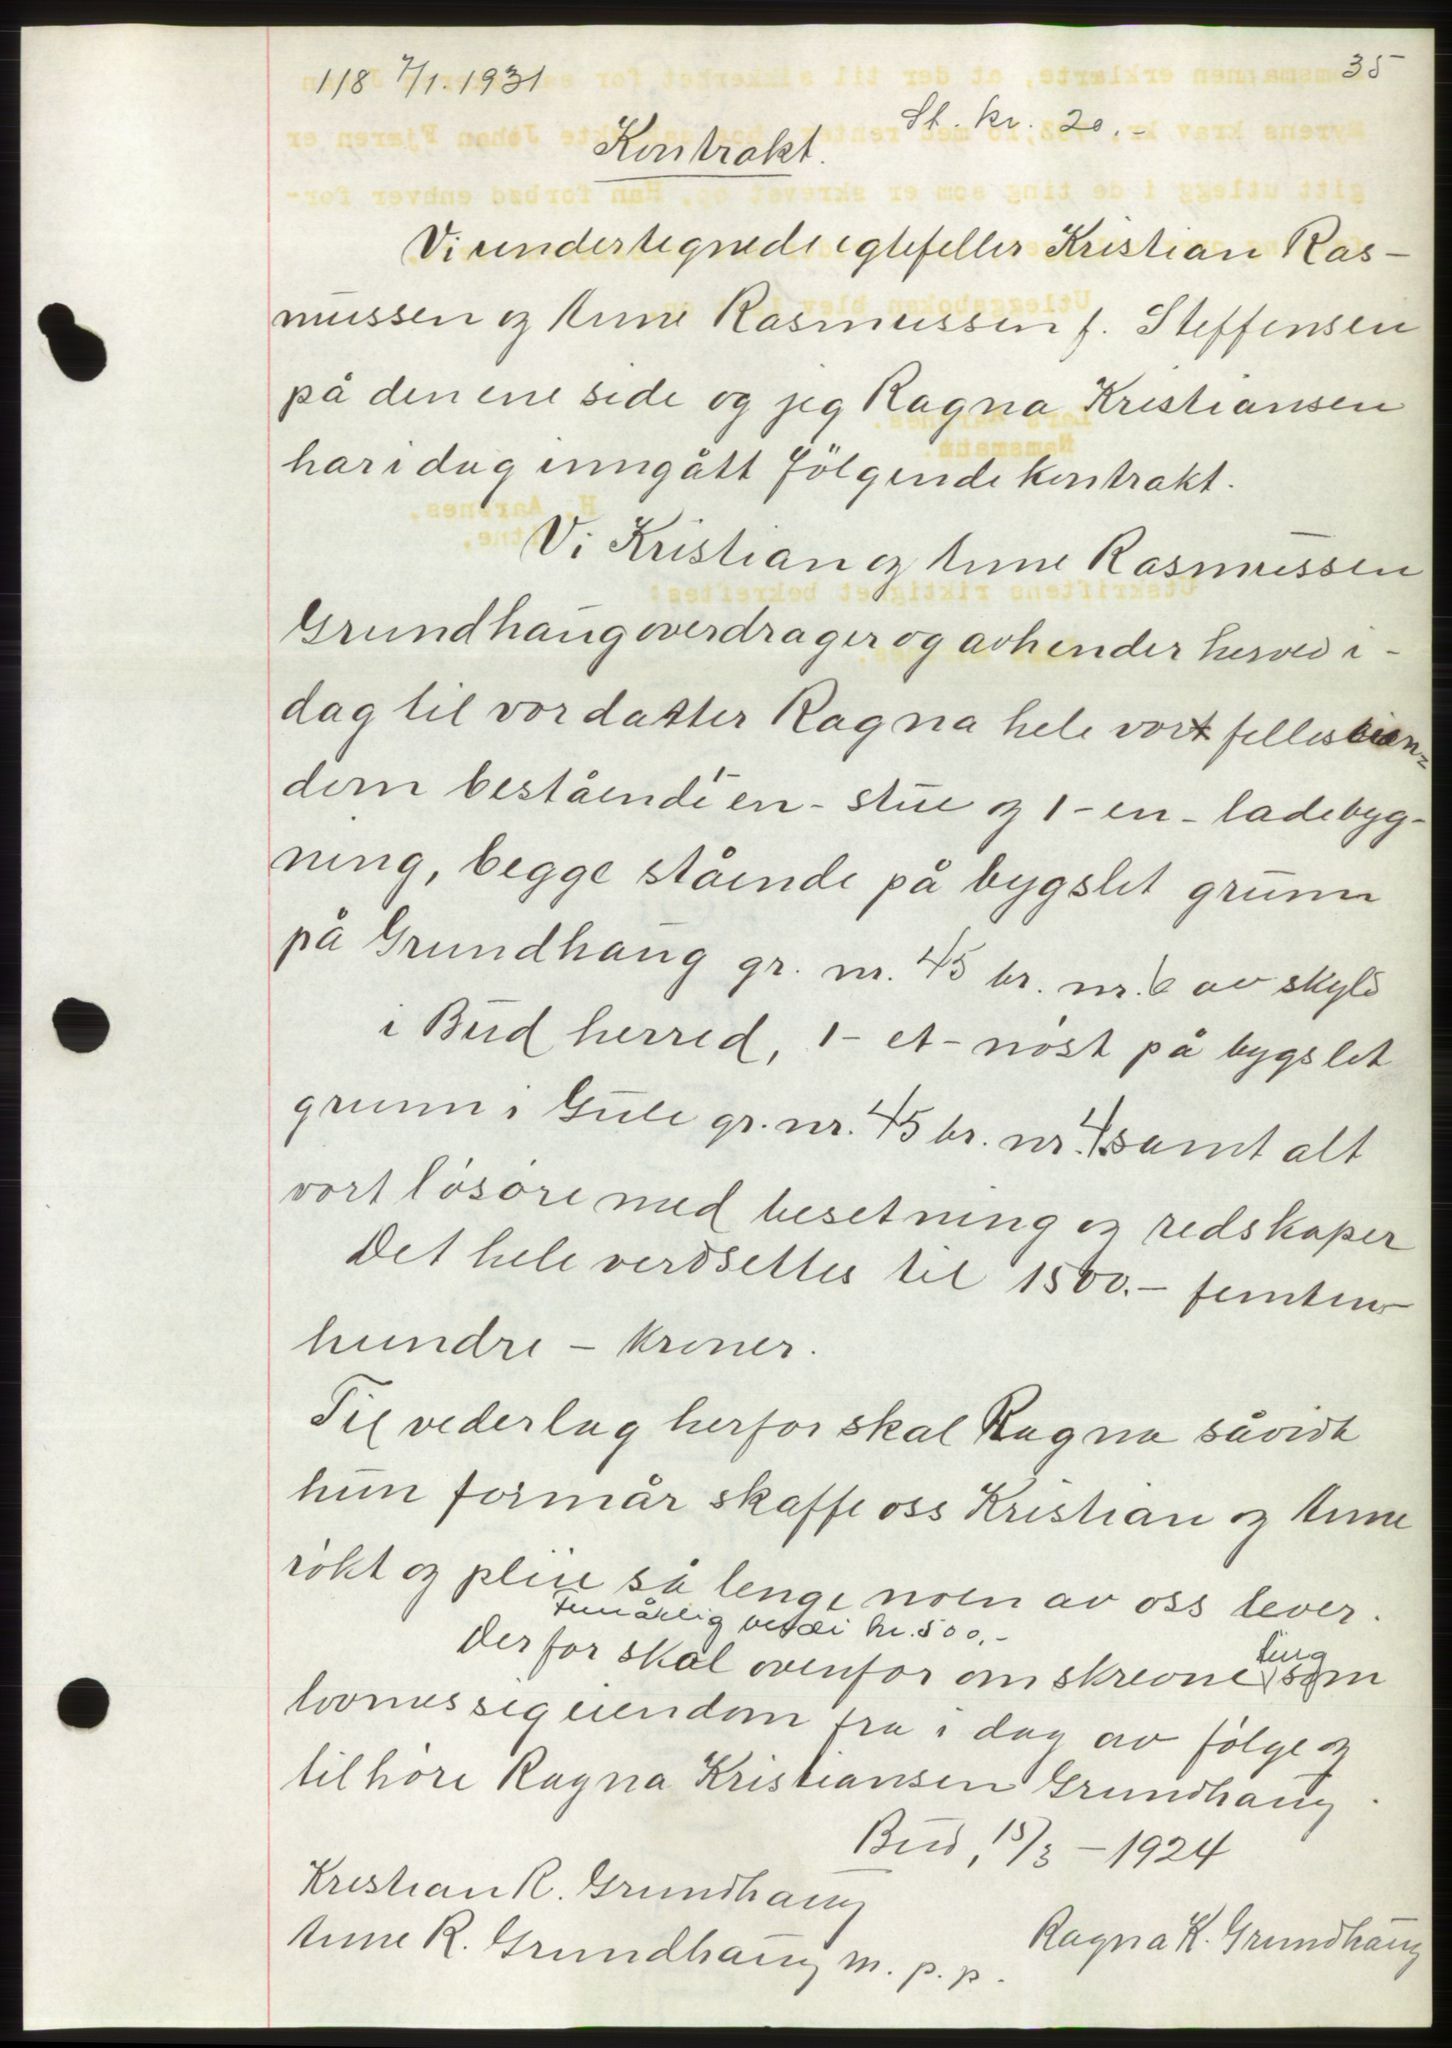 118 7/1. 1931
35
St. kr. 20.-
Kontrakt.
Vi undertegnede egtefeller Kristian Ras-
mussen og Anne Rasmussen f. Steffensen
på den ene side og jeg Ragna Kristiansen
har idag inngått følgende kontrakt.
Vi Kristian og Anne Rasmussen
Grundhaug overdrager og avhender herved i-
dag til vor datter Ragna hele vort felleseien-
dom bestående i en - stue og 1 - en - ladebyg-
ning, begge stående på bygslet grunn
på Grundhaug gr. nr. 45 br. nr. 6 av skyld
i Bud herred, 1 - et - nøst på bygslet
grunn i Gule gr. nr. 45 br. nr. 4. samt alt
vort løsøre med besetning og redskaper
Det hele verdsettes til 1500.- femten
hundre - kroner.
Til vederlag herfor skal Ragna såvidt
hun formår skaffe oss Kristian og Anne
røkt og pleie så lenge noen av oss lever.
Femårlig verdi kr. 500.-
Derfor skal ovenfor omskrevne ting som
lovmessig eiendom fra i dag av følge og
tilhøre Ragna Kristiansen Grundhaug.
Bud, 15/3 - 1924
Kristian R. Grundhaug
Anne R. Grundhaug m. p. p.
Ragna K. Grundhaug